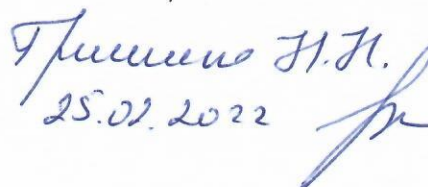 Гришина Н.Н.
25.02.2022